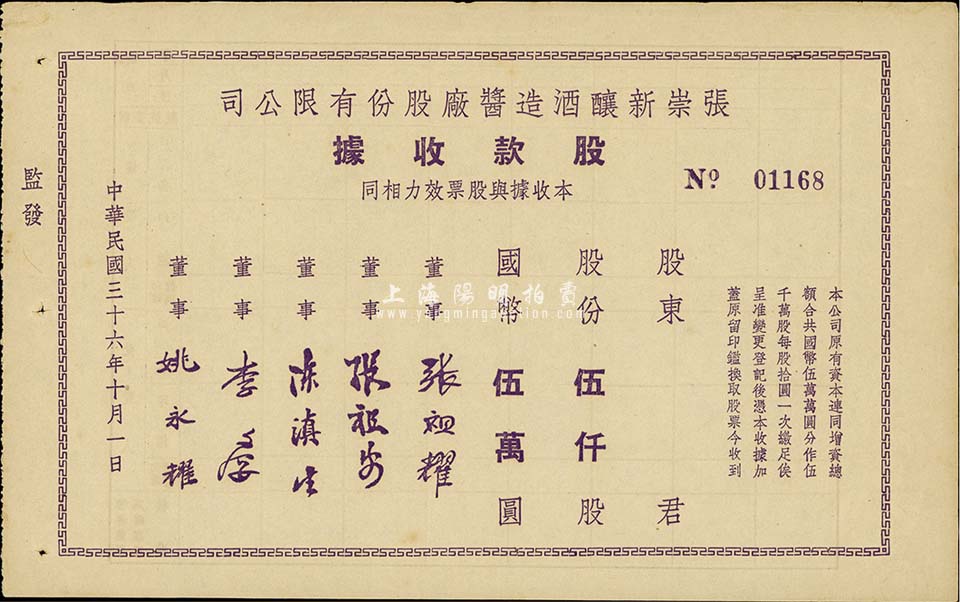 張崇新釀酒造醬廠股份有限公司
股款收據
本收據與股票效力相同
Nº 01168
本公司原有資本連同增資總
額合共國幣伍萬萬圓分作伍
千萬股每股拾圓一次繳足俟
呈准變更登記後憑本收據加
蓋原留印鑑換取股票今收到
股東 君
股份伍仟股
國幣伍萬圓
董事 張祖耀
董事 張祖安
董事 陳滇生
董事 李
董事 姚永耀
中華民國三十六年十月一日
監發
上海陽明拍賣
www.yangmingauction.com